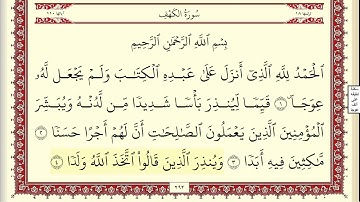 سُورَةُ الكَهْفِ
بِسْمِ اللَّهِ الرَّحْمَٰنِ الرَّحِيمِ
الْحَمْدُ لِلَّهِ الَّذِي أَنزَلَ عَلَىٰ عَبْدِهِ الْكِتَٰبَ وَلَمْ يَجْعَل لَّهُۥ
عِوَجَا ۜ ١ قَيِّمًا لِّيُنذِرَ بَأْسًا شَدِيدًا مِّن لَّدُنْهُ وَيُبَشِّرَ
الْمُؤْمِنِينَ الَّذِينَ يَعْمَلُونَ الصَّٰلِحَٰتِ أَنَّ لَهُمْ أَجْرًا حَسَنًا ٢
مَّٰكِثِينَ فِيهِ أَبَدًا ٣ وَيُنذِرَ الَّذِينَ قَالُوا اتَّخَذَ اللَّهُ وَلَدًا ٤
٢٩٣